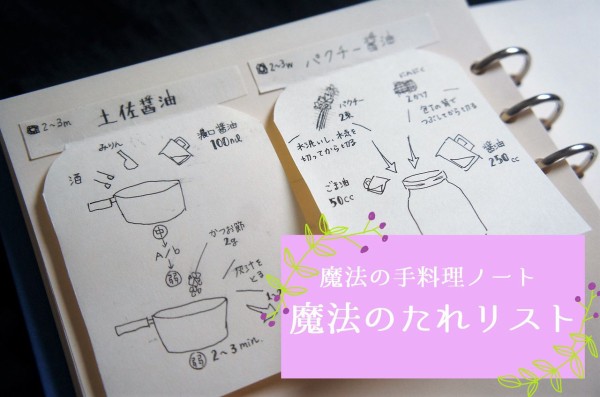 2~3m 土佐醤油
2~3w パクチー醤油
みりん
酒
濃口醤油
100ml
中
A/b
弱
かつお節
2g
灰汁を
とる
弱 2~3min.
パクチー
2束
水洗いし、水気を
切ってから切る
にんにく
2かけ
包丁の質で
つぶしてから切る
ごま油
50cc
醤油
250cc
魔法の手料理ノート
魔法のたれリスト